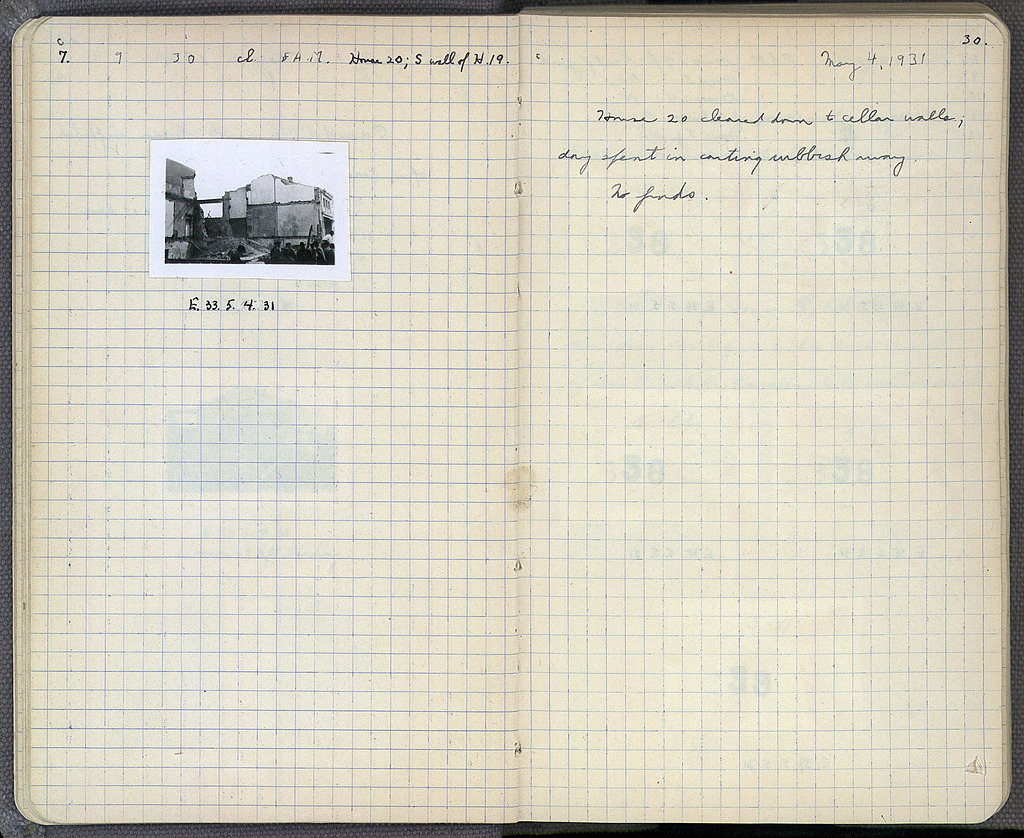 7. 9 30 cl. 8 A.M. House 20; S wall of H.19.
E. 33. 5. 4. 31
30.
May 4, 1931
House 20 cleared down to cellar walls;
day spent in carting rubbish away.
No finds.